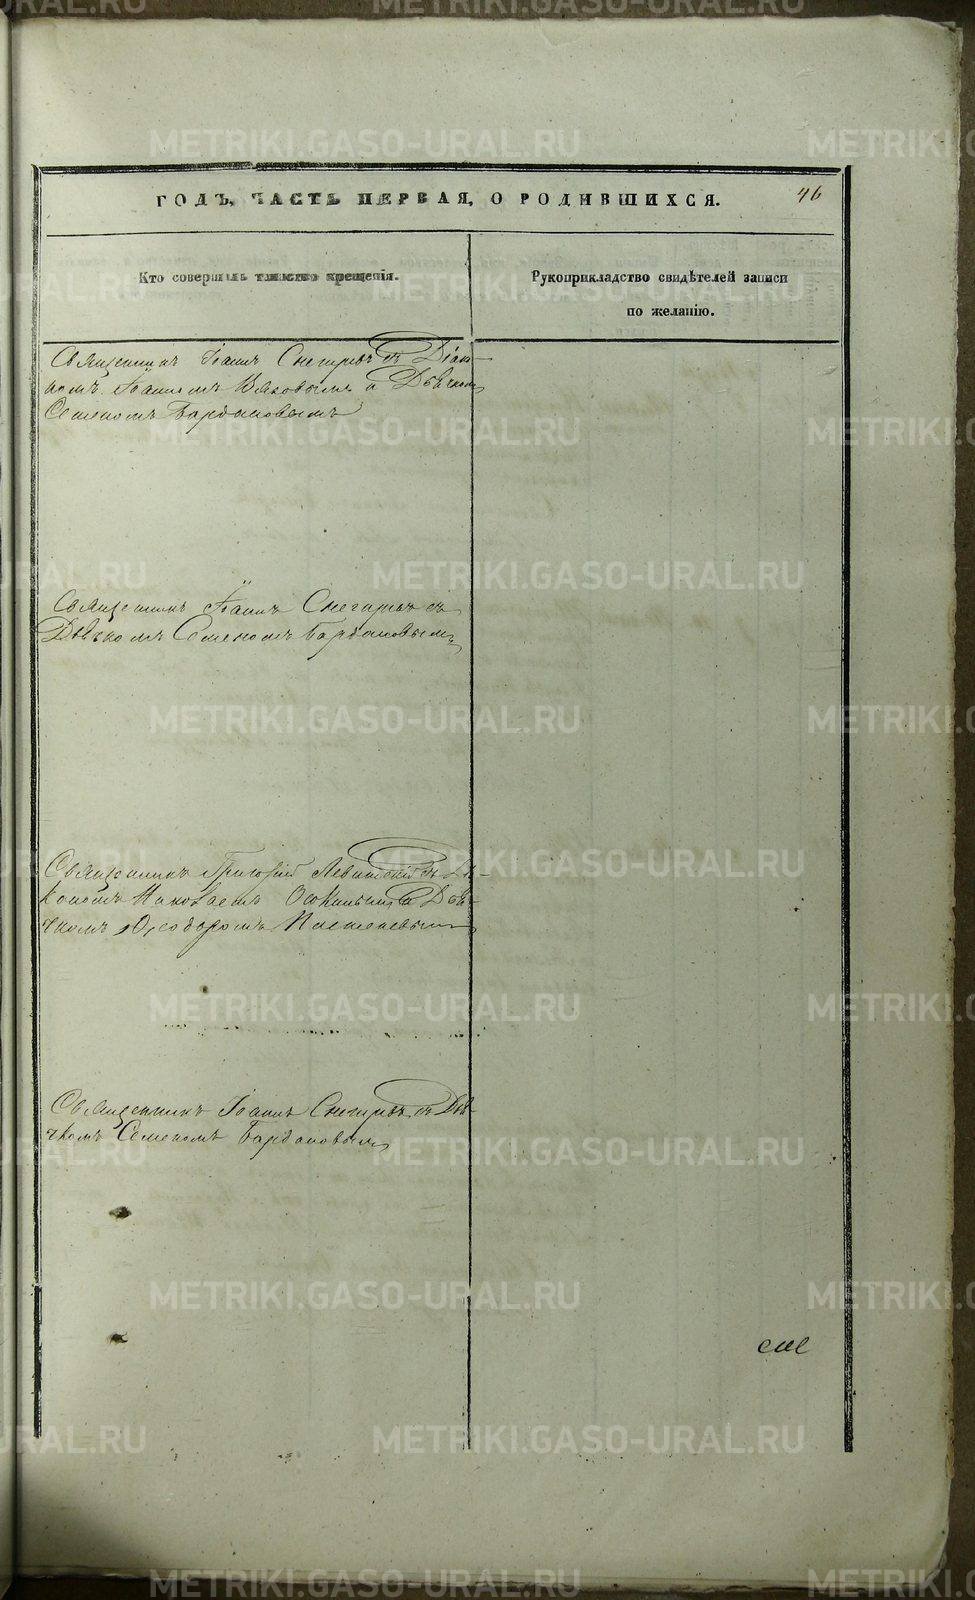 ГОДЪ, ЧАСТЬ ПЕРВАЯ, О РОДИВШИХСЯ. 46
Кто совершилъ таинство крещенія.
Рукоприкладство свидѣтелей записи
по желанію.
Священникъ Іоаннъ Снегиревъ съ Діако-
номъ Іоанномъ и Дьячкомъ
Семеномъ Бардаковымъ
Священникъ Іоаннъ Снегиревъ съ
Дьячкомъ Семеномъ Бардаковымъ
Священникъ Григорій Левитскій съ Діа-
кономъ Николаемъ и Дья-
чкомъ Ѳеодоромъ
Священникъ Іоаннъ Снегиревъ съ Дья-
чкомъ Семеномъ Бардаковымъ
METRIKI.GASO-URAL.RU